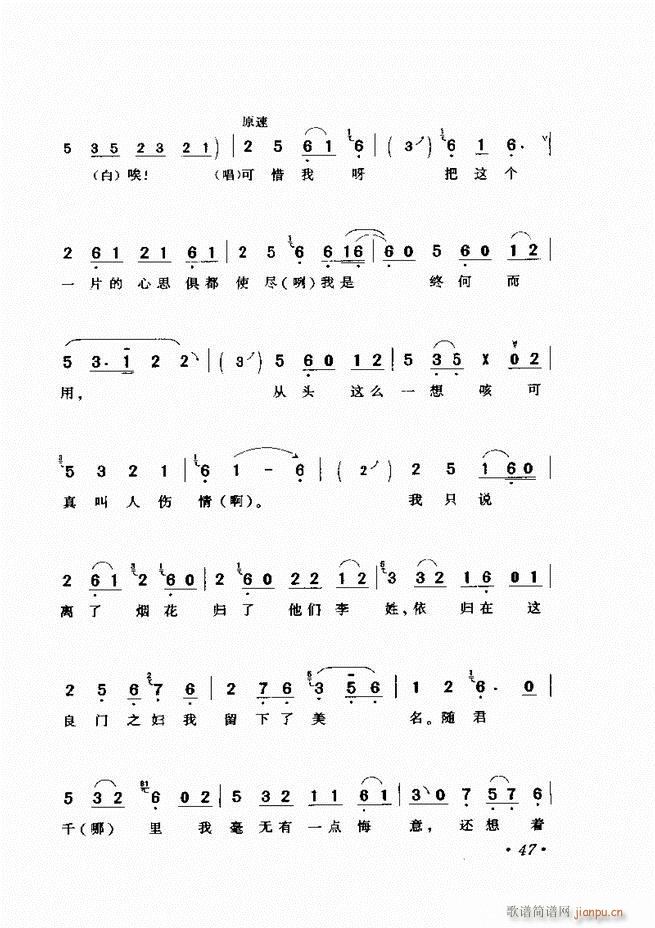 原速
5 35 23 21) | 2 5 61 6 | (3) | 6 1 6· |
(白)唉! (唱)可惜我呀 把这个
2 61 21 61 | 2 5 6 616 | 60 5 60 12 |
一片的心思俱都使尽(咧)我是 终何而
5 3·1 2 2 | (3) | 5 60 12 | 5 35 X 02
用, 从头这么一想咳可
5 3 2 1 | 6 1 - 6 | (2) | 2 5 160
真叫人伤情(啊)。 我只说
2 61 2 60 | 2 60 22 12 | 3 32 16 01 |
离了烟花归了他们李姓,依归在这
2 5 6 7 6 | 2 76 3 56 | 1 2 6· 0 |
良门之妇我留下了美名。随君
5 32 6 02 | 5 32 11 61 | 30 7 57 6
千(哪)里我毫无有一点悔意,还想着
·47·
歌谱简谱网 jianpu.cn